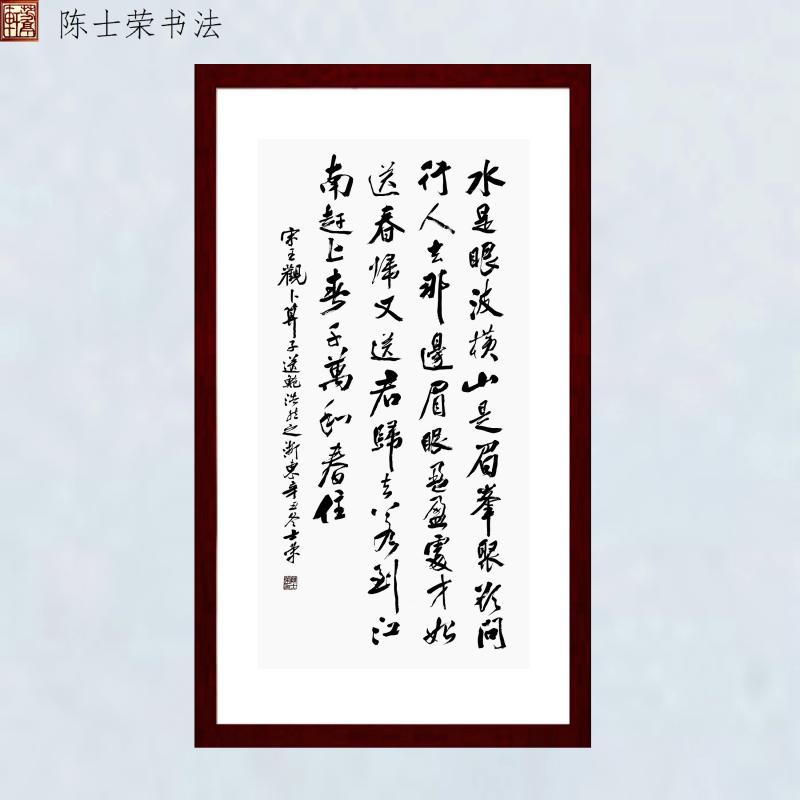 陈士荣书法
水是眼波横山是眉峯聚欲問
行人去那邊眉眼盈盈處才始
送春帰又送君歸去若到江
南赶上春千萬和春住
宋王觀卜算子送鮑浩然之浙東辛丑冬士荣